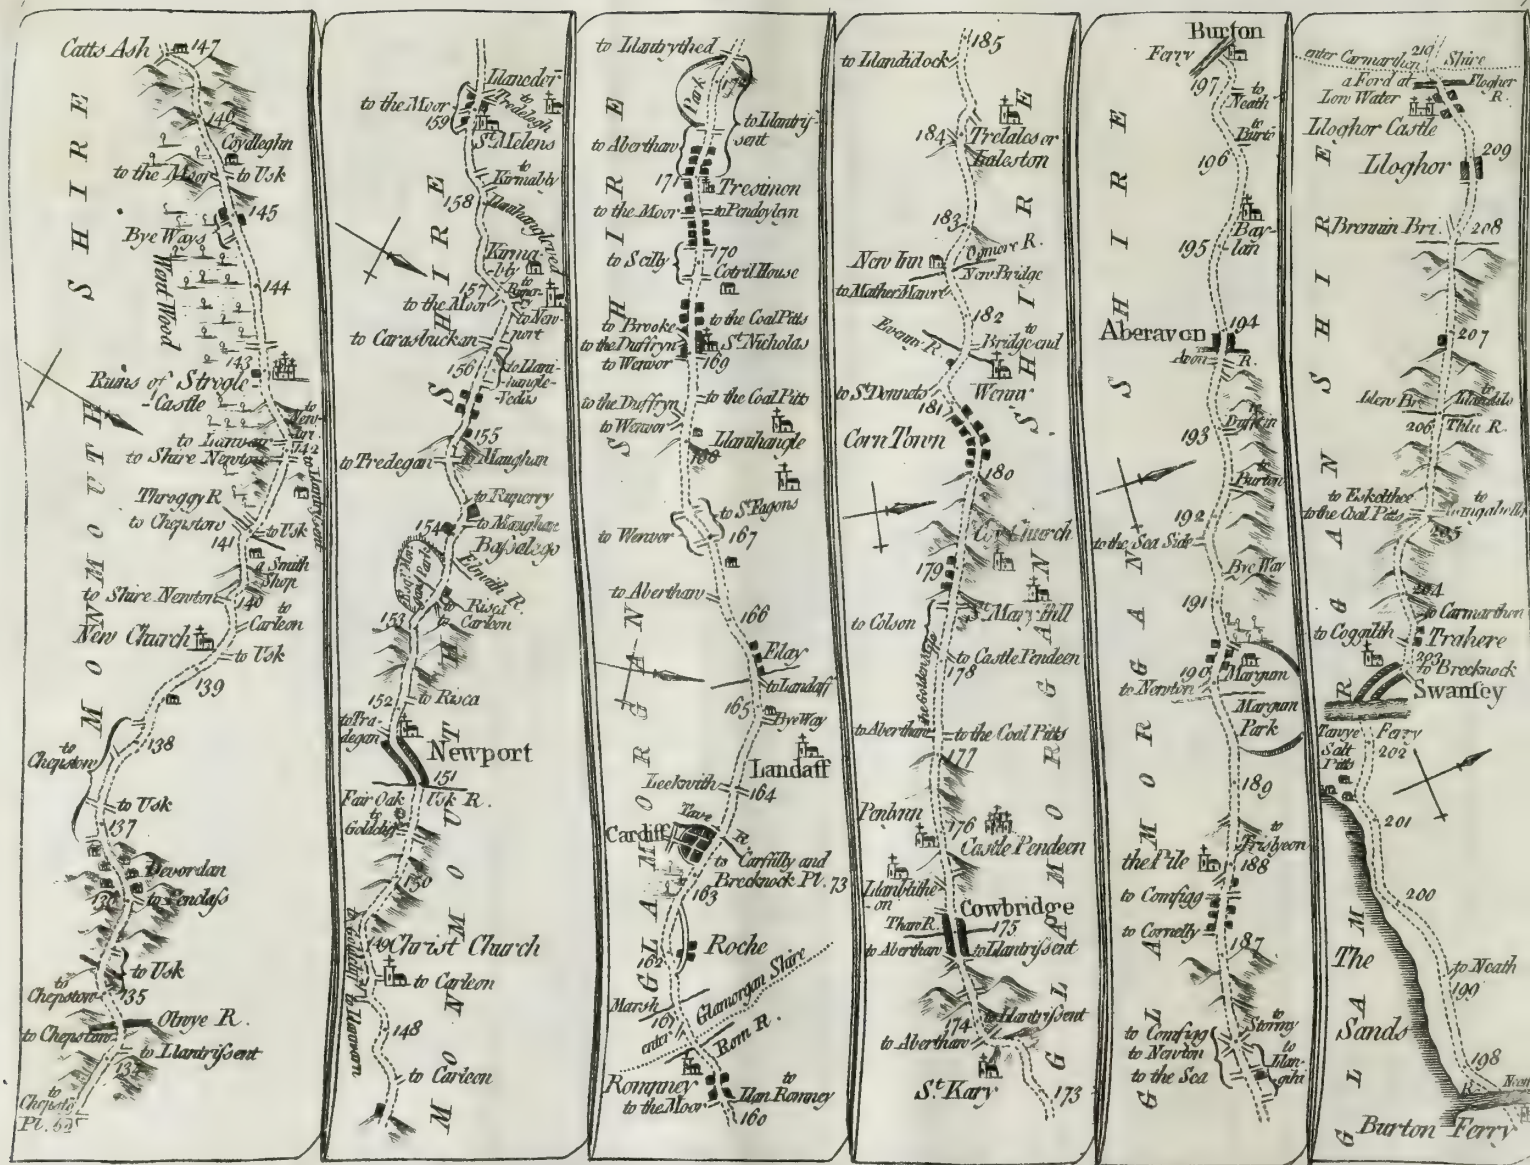 Catts Ash
147
146
Coydleghn
to the Moor
to Usk
145
Bye Ways
Wend Wood
144
143
Ruins of Strogle
Castle
to Lanvair
to Shire Newton
142
to Llantrissent
Throggy R
to Chepstow
to Usk
141
a Smith
Shop
to Shire Newton
140
to
Carleon
New Church
to Usk
139
138
to
Chepstow
to Usk
137
Devordan
136
to Penclass
to Usk
to
Chepstow
135
Olwye R.
to Chepstow
to Llantrissent
134
to
Chepstow
MONMOUTH SHIRE
Llaneder
to
Tredelegh
to the Moor
159
St. Melens
to
Kirmabby
158
Llanhangle
Kirma-
bby
157
to the Moor
to New-
port
to Carasbuckan
156
to Llan-
hangle-
Vedus
155
to Tredegan
to Maughan
to Ruperry
154
to Maughan
Bassalegs
Park
Edwith R.
to
Risca
to
Carleon
153
152
to Risca
to Tra-
degan
Newport
151
Fair Oak
Usk R.
to
Goldcliff
150
149
Christ Church
to Carleon
148
to Carleon
MONMOUTH SHIRE
to Llantrythed
172
Park
to Llantris-
sent
to Aberthaw
171
Tresimon
to the Moor
to Pendoylyn
170
to Scilly
Cotril House
to Brooke
to the Coal Pitts
to the Duffryn
St. Nicholas
to Wenvor
169
to the Duffryn
to the Coal Pitts
to Wenvor
Llanihangle
168
to St. Fagons
to Wenvor
167
to Aberthaw
166
Elay
to Landaff
165
Bye Way
Landaff
Leckwith
164
Tave
R
Cardiff
to Carffilly and
Brecknock Pl. 73
163
Roche
162
Marsh
Glamorgan Shire
161
enter
Rom R.
Romnney
to the Moor
to
Llan Romney
160
GLAMORGAN SHIRE
185
to Llandidock
184
Trelales or
Laleston
183
Ogmore R.
New Inn
New Bridge
to Mather Mawre
182
Evenny R.
to
Bridgend
Wenny
to St. Donnets
181
Corn Town
180
Cor Church
179
St. Mary Hill
to Colson
to Castle Pendeen
178
the Golden Mile
to Aberthaw
to the Coal Pitts
177
Penlynn
176
Castle Pendeen
Llanblithe-
on
Cowbridge
Thaw R.
175
to Aberthaw
to Llantrissent
174
to Llantrissent
to Aberthaw
St. Kary
173
GLAMORGAN SHIRE
Burton
Ferry
197
to
Neath
to
Burto
196
Bay-
lan
195
194
Aberavon
Avon R.
193
to
Burton
192
to the Sea Side
Bye Way
191
190
Margum
to Newton
Margum
Park
189
the Pile
188
to Comfigg
to Cornelly
187
to Comfigg
to
Stormy
to Newton
to the Sea
to
Llan-
GLAMORGAN SHIRE
210
enter Carmarthen Shire
a Ford at
Low Water
Flogher
R.
Lloghor Castle
209
Lloghor
Brennin Bri.
208
207
206
to the Coal Pitts
205
204
to Carmarthen
to Coggilth
Trahere
203
to Brecknock
Swansey
R
Tawye
Ferry
Salt
Pitts
202
201
200
The
Sands
to Neath
199
198
R.
Burton Ferry
GLAMORGANSHIRE